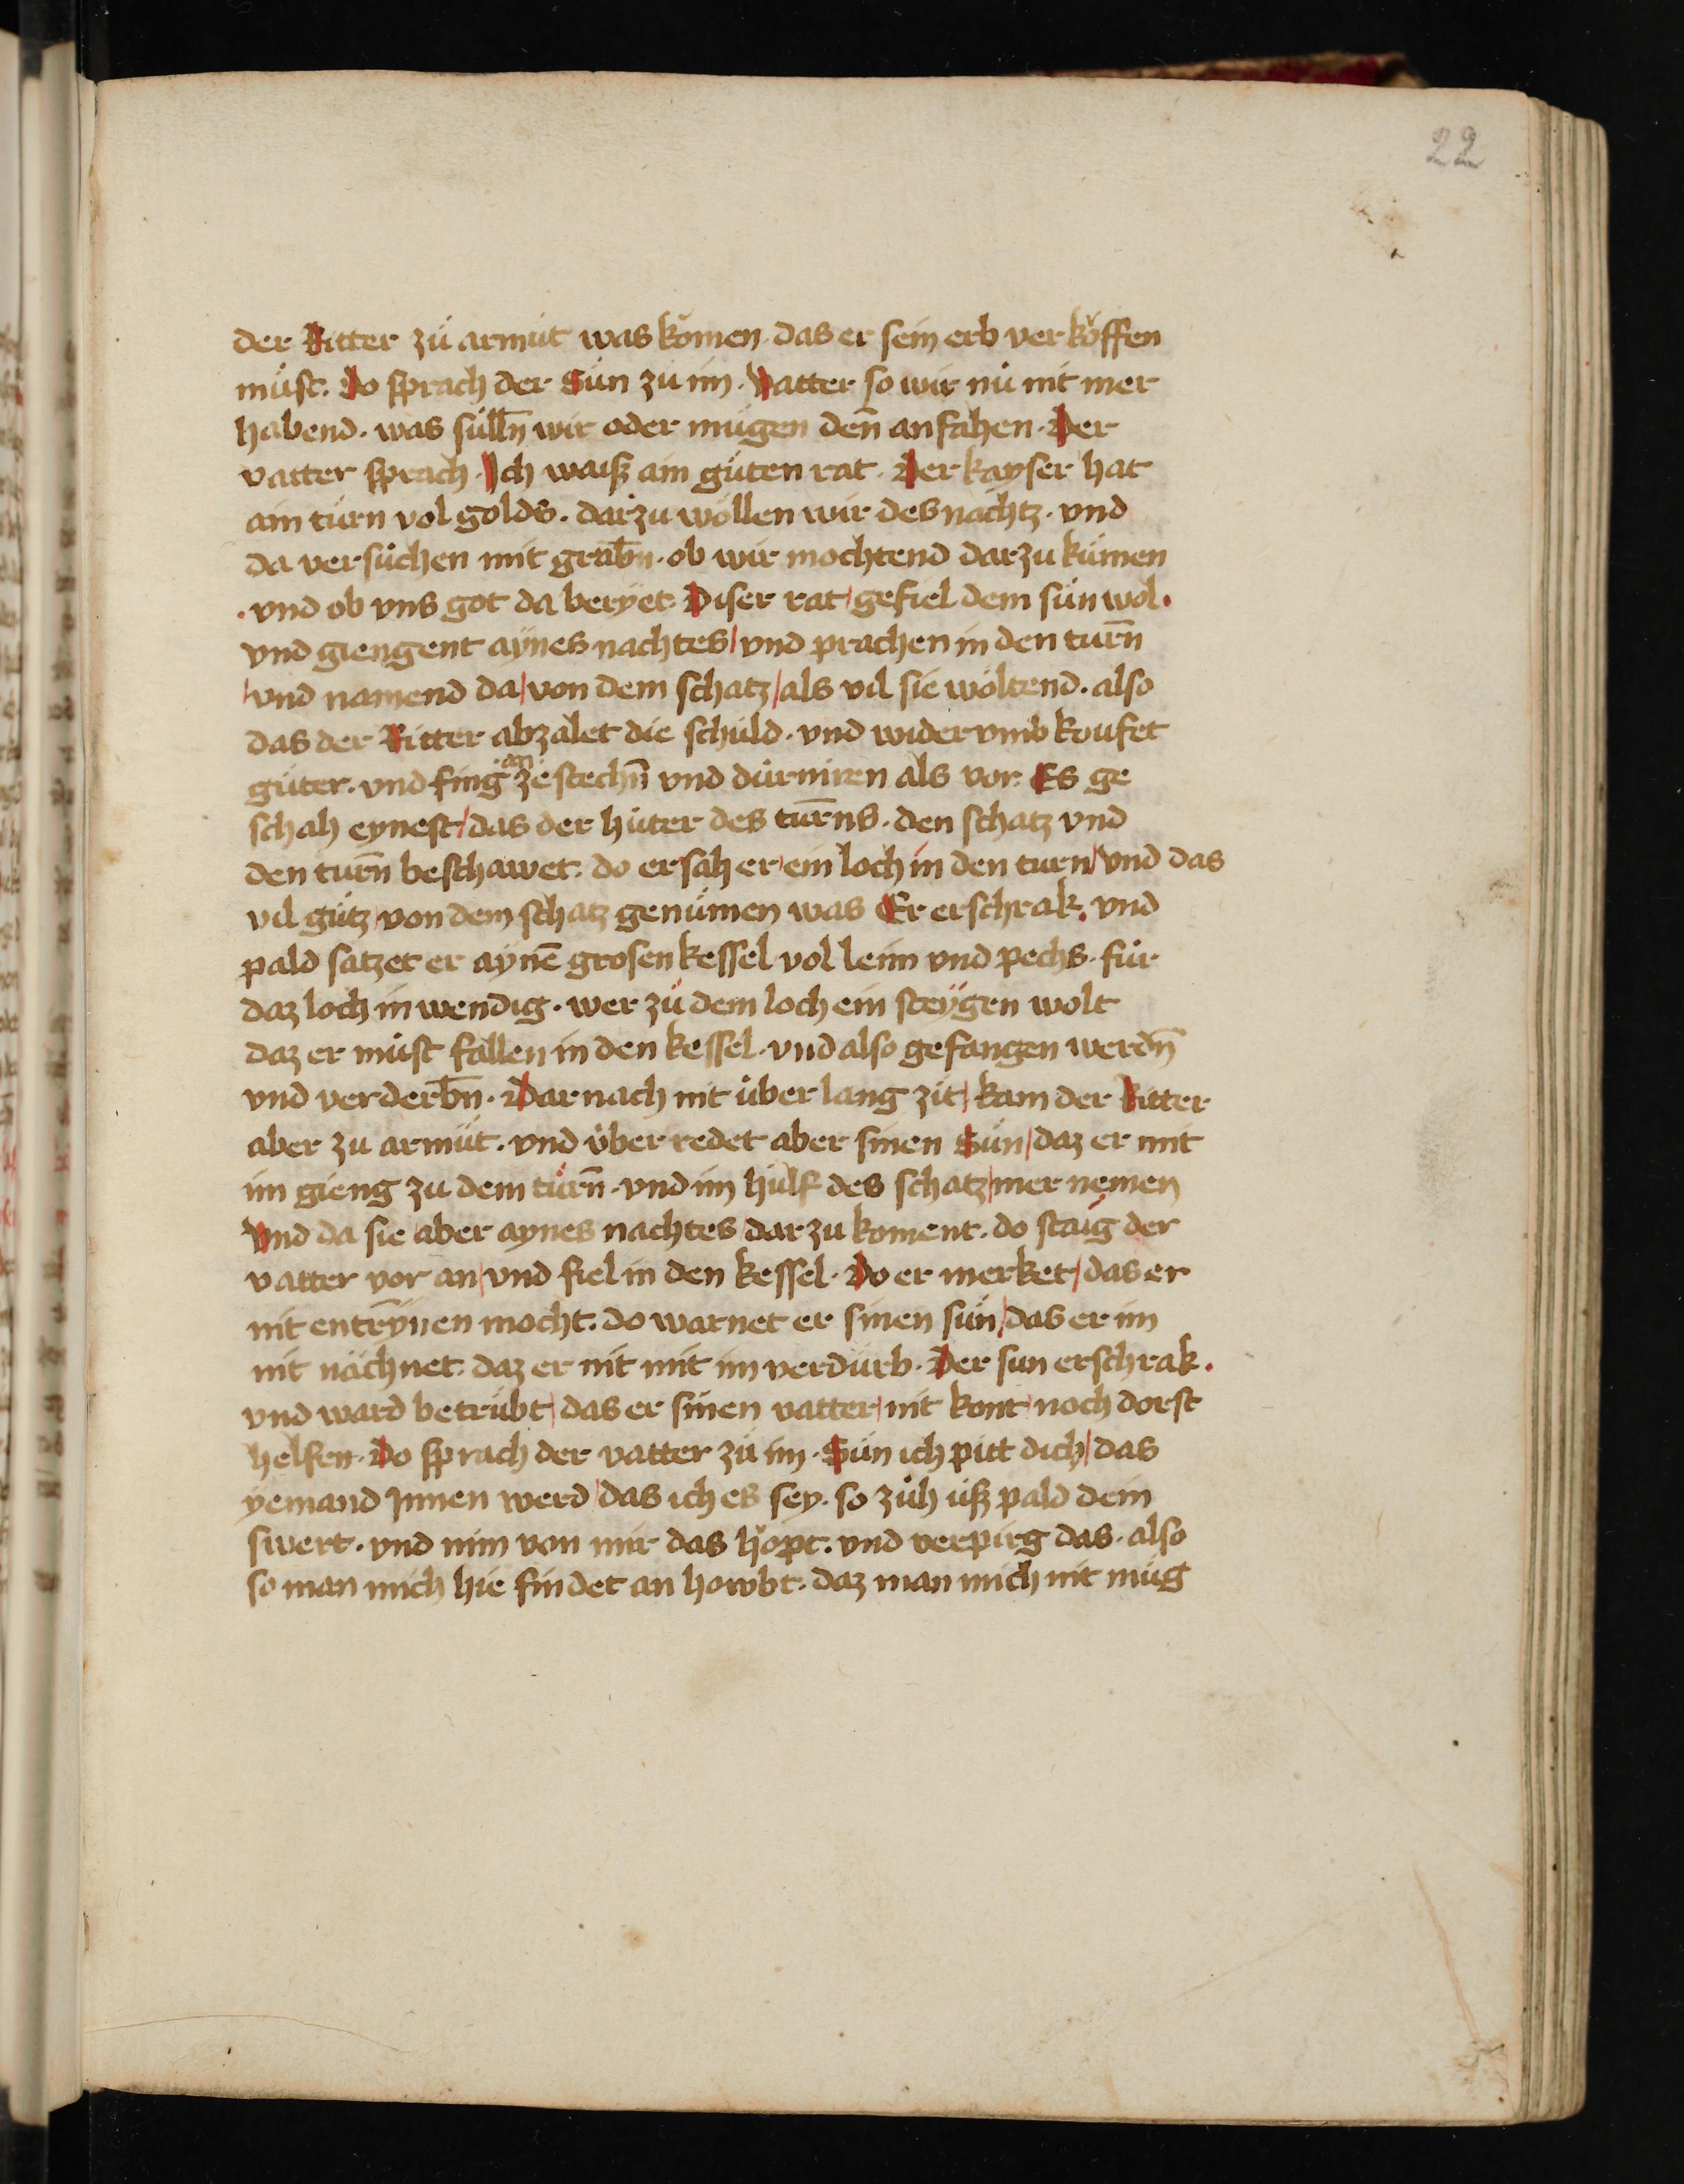 22
der Ritter zů armůt was komen· das er sein erb verkoͮffen
můst. Do sprach der Sůn zu im· Vatter so wir nů nit mer
habend· was sülln̄ wir oder mügen den̄ anfahen· Der
vatter sprach· Ich waiß ain gůten rat· Der kayser hat
ain turn vol golds· darzu wöllen wir des nachtz· vnd
da versůchen mit grabn̄· ob wir mochtend darzu kůmen
·vnd ob vns got da beryet· Diser rat/ gefiel dem sůn wol·
vnd giengent aÿnes nachtes/ vnd prachen in den turn̄
/vnd namend da/ von dem schatz/ als vil sie wöltend· also
das der Ritter abzalet die schuld· vnd widervmb koufet
gůter· vnd fing an ze stechn̄ vnd důrniren als vor· Es ge
schah eynest/ das der hůter des turn̄s· den schatz vnd
den turn̄ beschawet· do ersah er/ ein loch in den turn/ vnd das
vil gůtz/ von dem schatz genůmen was Er erschrak· vnd
pald satzet er aynē grosen kessel vol leim vnd pechs· fůr
daz loch inwendig· wer zů dem loch ein steÿgen wolt
daz er můst fallen in den kessel· vnd also gefangen werdn̄
vnd verderbn̄· Darnach nit über lang zit/ kam der Ritter
aber zu armůt· vnd überredet aber sinen Sůn/ daz er mit
im gieng zu dem tůrn̄· vnd im hůlf des schatz/ mer nemen
Vnd da sie aber aynes nachtes dar zu koment· do staig der
vatter vor an/ vnd fiel in den kessel· Do er merket/ das er
nit entrȳnen mocht· do warnet er sinen sůn/ das er im
nit nächnet· daz er nit mit im verdürb· Der sun erschrak·
vnd ward betrübt/ das er sinen vatter/ nit kont/ noch dorst
helfen· Do sprach der vatter zů im· Sůn ich pitt dich/ das
yemand Innen werd/ das ich es sey· so zůh ůß pald dein
swert· vnd nim von mir das hoͮpt· vnd verpirg das· also
so man mich hie findet an howbt· daz man mich nit můg